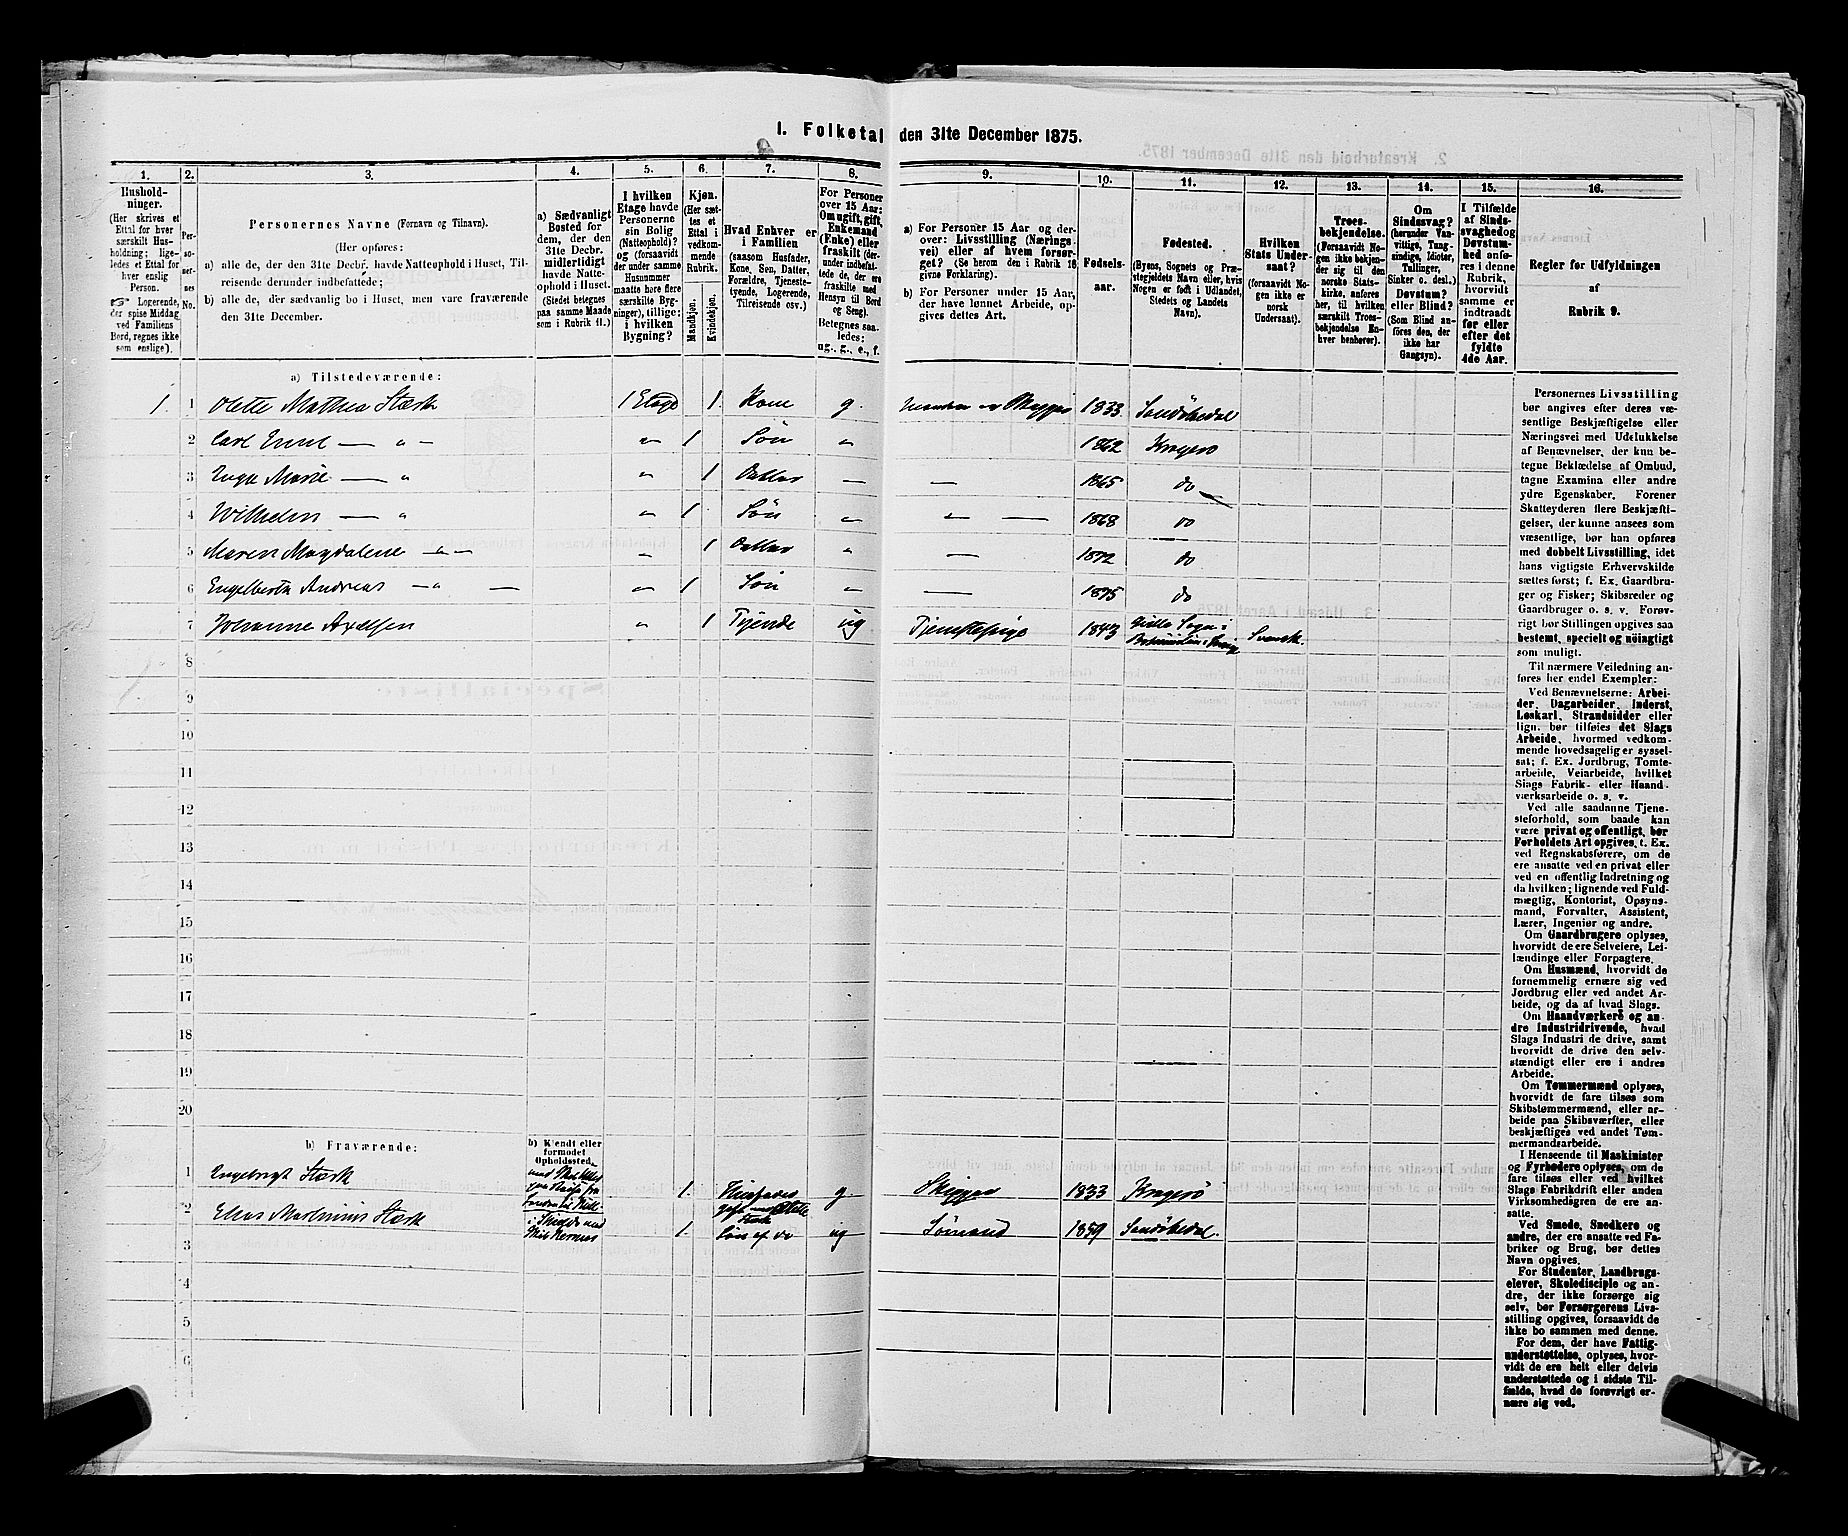 1. Folketal den 31te December 1875.
1.
2.
3.
4.
5.
6.
7.
8.
9.
10.
11.
12.
13.
14.
15.
16.
Hushold-
ninger.
(Her skrives et
Ettal for hver
særskilt Hus-
holdning; lige-
ledes et Ettal for
hver enslig
Person.
☞ Logerende,
der spise Middag
ved Familiens
Bord, regnes ikke
som enslige).
Per-
so-
ner-
nes
No.
Personernes Navne (Fornavn og Tilnavn).
(Her opføres:
a) alle de, der den 31te Decbr. havde Natteophold i Huset, Til-
reisende derunder indbefattede;
b) alle de, der sædvanlig bo i Huset, men vare fraværende
den 31te December.
a) Sædvanligt
Bosted for
dem, der den
31te Decbr.
midlertidigt
havde Natte-
ophold i Huset.
(Stedet betegnes
paa samme Maade
som i Rubrik 11.)
I hvilken
Etage havde
Personerne
sin Bolig
(Natteophold)?
og (forsaavidt
der under samme
Husnummer
maatte høre flere
særskilte Byg-
ninger), tillige:
i hvilken
Bygning?
Kjøn.
(Her sæt-
tes et
Ettal i
vedkom-
mende
Rubrik.
Mandkjøn.
Kvindekjøn.
Hvad Enhver er
i Familien
(saasom Husfader,
Kone, Søn, Datter,
Forældre, Tjeneste-
tyende, Logerende,
Tilreisende osv.)
For Personer
over 15 Aar:
Om ugift, gift,
Enkemand
(Enke) eller
fraskilt (der-
under indbefat-
tede de, der ere
fraskilte med
Hensyn til Bord
og Seng).
Betegnes saa-
ledes:
ug., g., e., f.
a) For Personer 15 Aar og der-
over: Livsstilling (Nærings-
vei) eller af hvem forsør-
get? (Se herom den i Rubrik 16
givne Forklaring).
b) For Personer under 15 Aar,
der have lønnet Arbeide, op-
gives dettes Art.
Fødsels-
aar.
Fødested.
(Byens, Sognets og Præ-
stegjeldets Navn eller, hvis
Nogen er født i Udlandet,
Stedets og Landets
Navn).
Hvilken
Stats Under-
saat?
(forsaavidt No-
gen ikke er
norsk
Undersaat).
Troes-
bekjendelse.
(Forsaavidt No-
gen ikke bekjen-
der sig til den
norske Stats-
kirke, anføres
her, til hvilken
særskilt Troes-
bekjendelse En-
hver henhører).
Om
Sindssvag?
(herunder Van-
vittige, Tung-
sindige, Idioter,
Tullinger,
Sinker o. desl.)
Døvstum?
eller Blind?
(Som Blind an-
føres den, der
ikke har
Gangsyn).
I Tilfælde
af Sinds-
svaghed og
Døvstum-
hed anfø-
res i denne
Rubrik,
hvorvidt
samme er
indtraadt
før eller
efter det
fyldte
4de Aar.
Regler for Udfyldningen
af
Rubrik 9.
a) Tilstedeværende:
1. 1 Olette Mathea Stærk 1 Etage 1. Kone g. 1833. Sandøkedal
2 Carl — „ - „ 1 Søn „ 1862 Kragerø
3 Inga Marie — „ „ 1 Datter — — 1865 do
4 Wilhelm — „ „ 1 Søn „ „ — 1868 do
5 Maren Magdalene -„- „ 1 Datter „ — 1872 do
6 Andreas -„- — „ 1 Søn „ — 1875 do
7 Johanne Axelsen „ 1 Tyende ug Tjenestepige 1843 Svensk
8
9
10
11
12
13
14
15
16
17
18
19
20
b) Fraværende:
b) Kjendt eller
formodet
Opholdssted.
1 Engebregt Stærk 1. Husfader g. Skipper 1833 Kragerø
gift med Olette
Stærk
2 Elias Martinius Stærk 1. Søn af do ug Sømand 1859 Sandøkedal.
3
4
5
6
Personernes Livsstilling
bør angives efter deres væ-
sentlige Beskjæftigelse eller
Næringsvei med Udelukkelse
af Benævnelser, der kun be-
tegne Beklædelse af Ombud,
tagne Examina eller andre
ydre Egenskaber. Forener
Skatteyderen flere Beskjæfti-
gelser, der kunne ansees som
væsentlige, bør han opføres
med dobbelt Livsstilling, idet
hans vigtigste Erhvervskilde
sættes først; f. Ex. Gaardbru-
ger og Fisker; Skibsreder og
Gaardbruger o. s. v. Forøv-
rigt bør Stillingen opgives saa
bestemt, specielt og nöiagtigt
som muligt.
Til nærmere Veiledning an-
føres her endel Exempler:
Ved Benævnelserne: Arbei-
der, Dagarbeider, Inderst,
Løskarl, Strandsidder eller
lign. bør tilføies det Slags
Arbeide, hvormed vedkom-
mende hovedsagelig er syssel-
sat; f. Ex. Jordbrug, Tomte-
arbeide, Veiarbeide, hvilket
Slags Fabrik- eller Haand-
værksarbeide o. s. v.
Ved alle saadanne Tjene-
steforhold, som baade kan
være privat og offentligt, bør
Forholdets Art opgives, t. Ex.
ved Regnskabsførere, om de
ere ansatte ved en privat eller
ved en offentlig Indretning og
da hvilken; lignende ved Fuld-
mægtig, Kontorist, Opsyns-
mand, Forvalter, Assistent,
Lærer, Ingeniør og andre.
Om Gaardbrugere oplyses,
hvorvidt de ere Selveiere, Lei-
lændinge eller Forpagtere.
Om Husmænd, hvorvidt de
fornemmelig ernære sig ved
Jordbrug eller ved andet Ar-
beide, og da af hvad Slags.
Om Haandværkere og an-
dre Industridrivende, hvad
Slags Industri de drive, samt
hvorvidt de drive den selv-
stændigt eller ere i andres
Arbeide.
Om Tømmermænd oplyses,
hvorvidt de fare tilsøs som
Skibstømmermænd, eller ar-
beide paa Skibsværfter, eller
beskjæftiges ved andet Tøm-
mermandsarbeide.
I Henseende til Maskinister
og Fyrbødere oplyses, om de
fare tilsøs eller ved hvilket
Slags Fabrikdrift eller anden
Virksomhedsgren de ere an-
satte.
Ved Smede, Snedkere og
andre, der ere ansatte ved Fa-
briker og Brug, bør dettes
Navn opgives.
For Studenter, Landbrugs-
elever, Skoledisciple og an-
dre, der ikke forsørge sig
selv, bør Forsørgerens Livs-
stilling opgives, forsaavidt de
ikke bo sammen med denne.
For dem, der have Fattig-
understøttelse, oplyses, hvor-
vidt de ere helt eller delvis
understøttede og i sidste Til-
fælde, hvad de forøvrigt er-
nære sig ved.